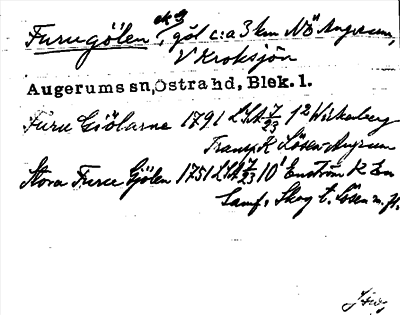 Furugölen, nr 3, göl c:a 3 km NÖ Augerum,
V Kroksjön
Augerums sn, Östra hd, Blek. l.
Furu Giölarne 1791 LSA 7/23 1² Wirkaberg
Transp. K Lösen Augrum
Stora Furu Gjölen 1751 LSA 7/23 10¹ Enström K En
Samf. Skog t. Lösen m. fl.